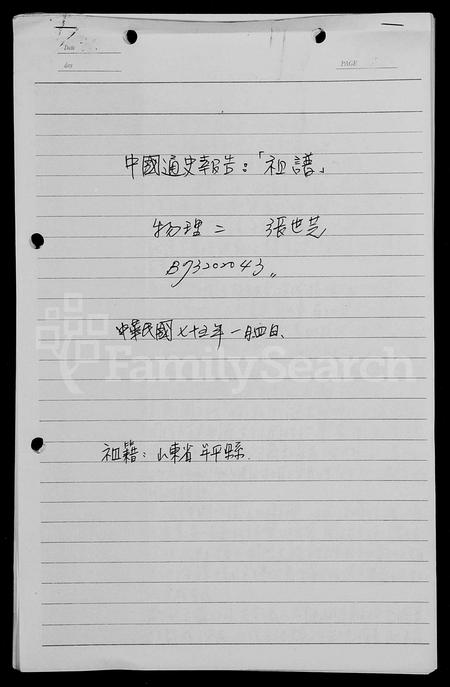 Date
PAGE
中國通史報告：「祖譜」
物理二 張世芸
B73202043
中華民國七十五年一月四日、
FamilySearch
祖籍：山東省牟平縣.